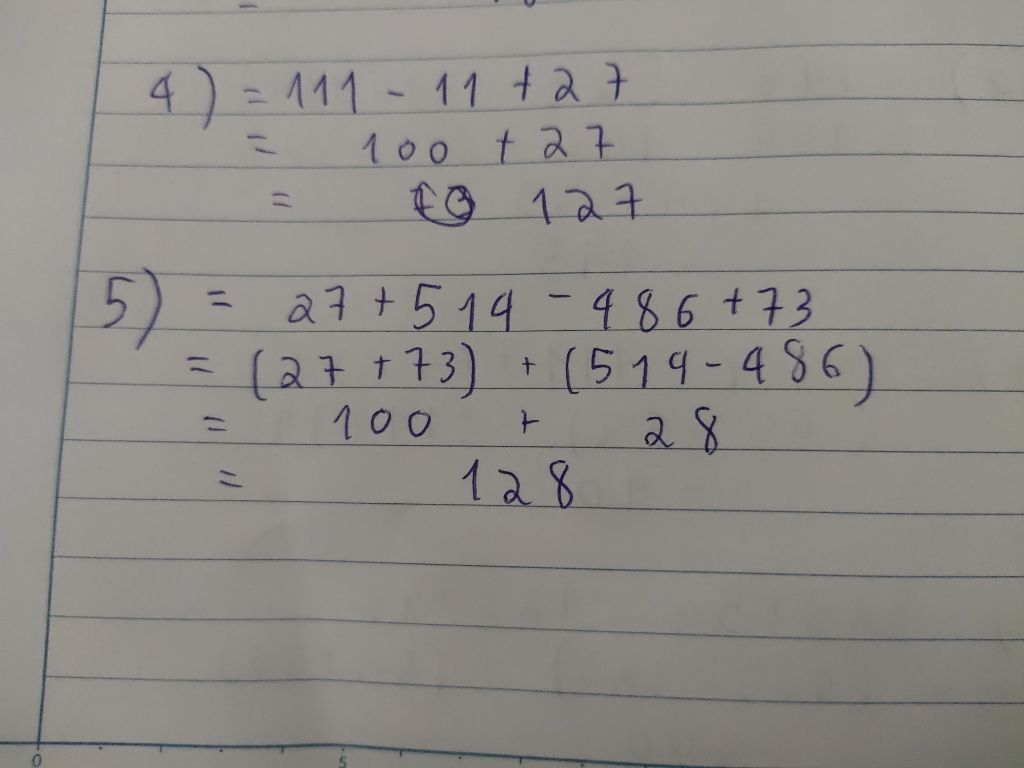 4) = 111 - 11 + 27
= 100 + 27
= 127
5) = 27 + 514 - 486 + 73
= (27 + 73) + (514 - 486)
= 100 + 28
= 128
0 5